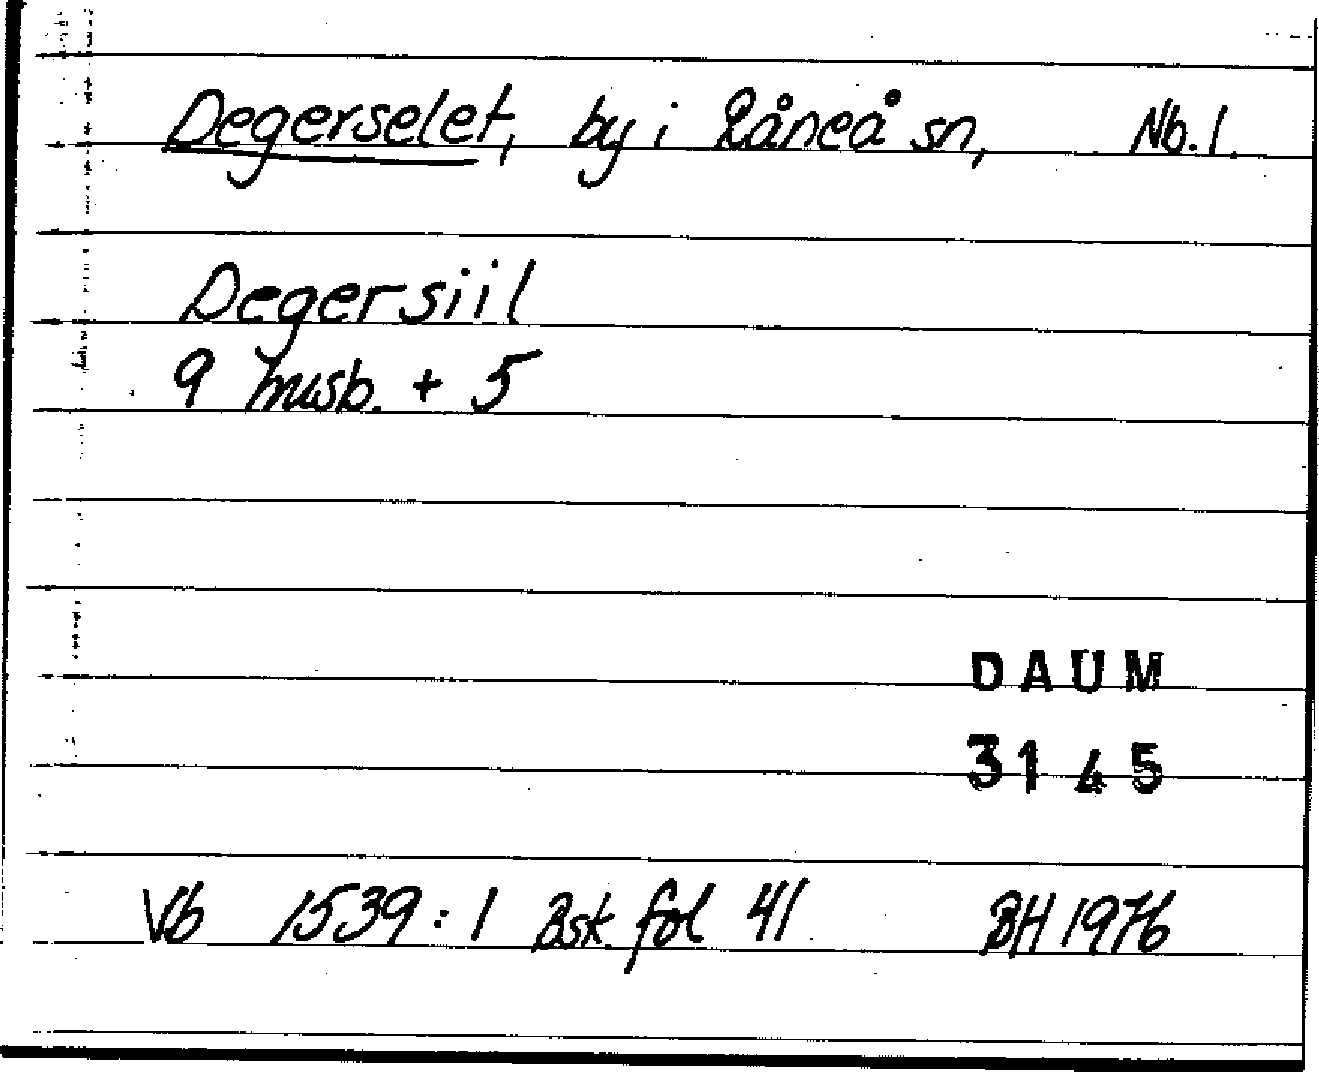 Degerselet, by i Råneå sn, Nb.l.
Degersiil
9 husb. + 5
DAUM
3145
Vb 1539:1 Bsk. fol 41 BH 1976